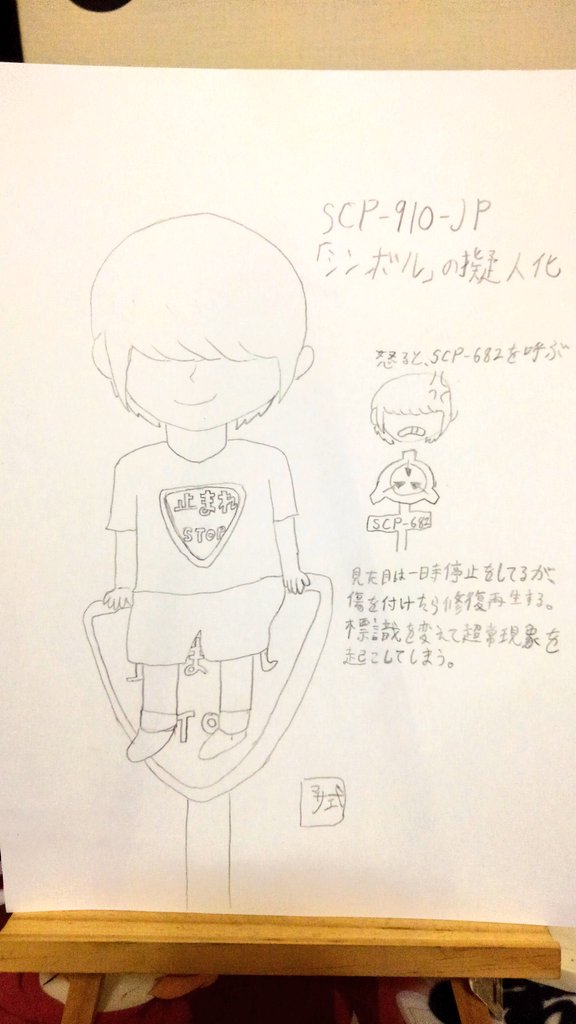 SCP-910-JP
「シンボル」の擬人化
怒ると、SCP-682を呼ぶ
SCP-682
止まれ
STOP
見た目は一時停止をしてるが、
傷を付けたら修復再生する。
標識を変えて超常現象を
起こしてしまう。
ま
TO